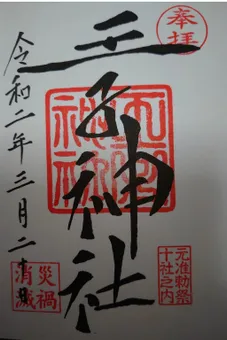 奉拝
王子神社
王子神社
元准勅祭
十社之内
令和二年三月二十日
災禍
消滅